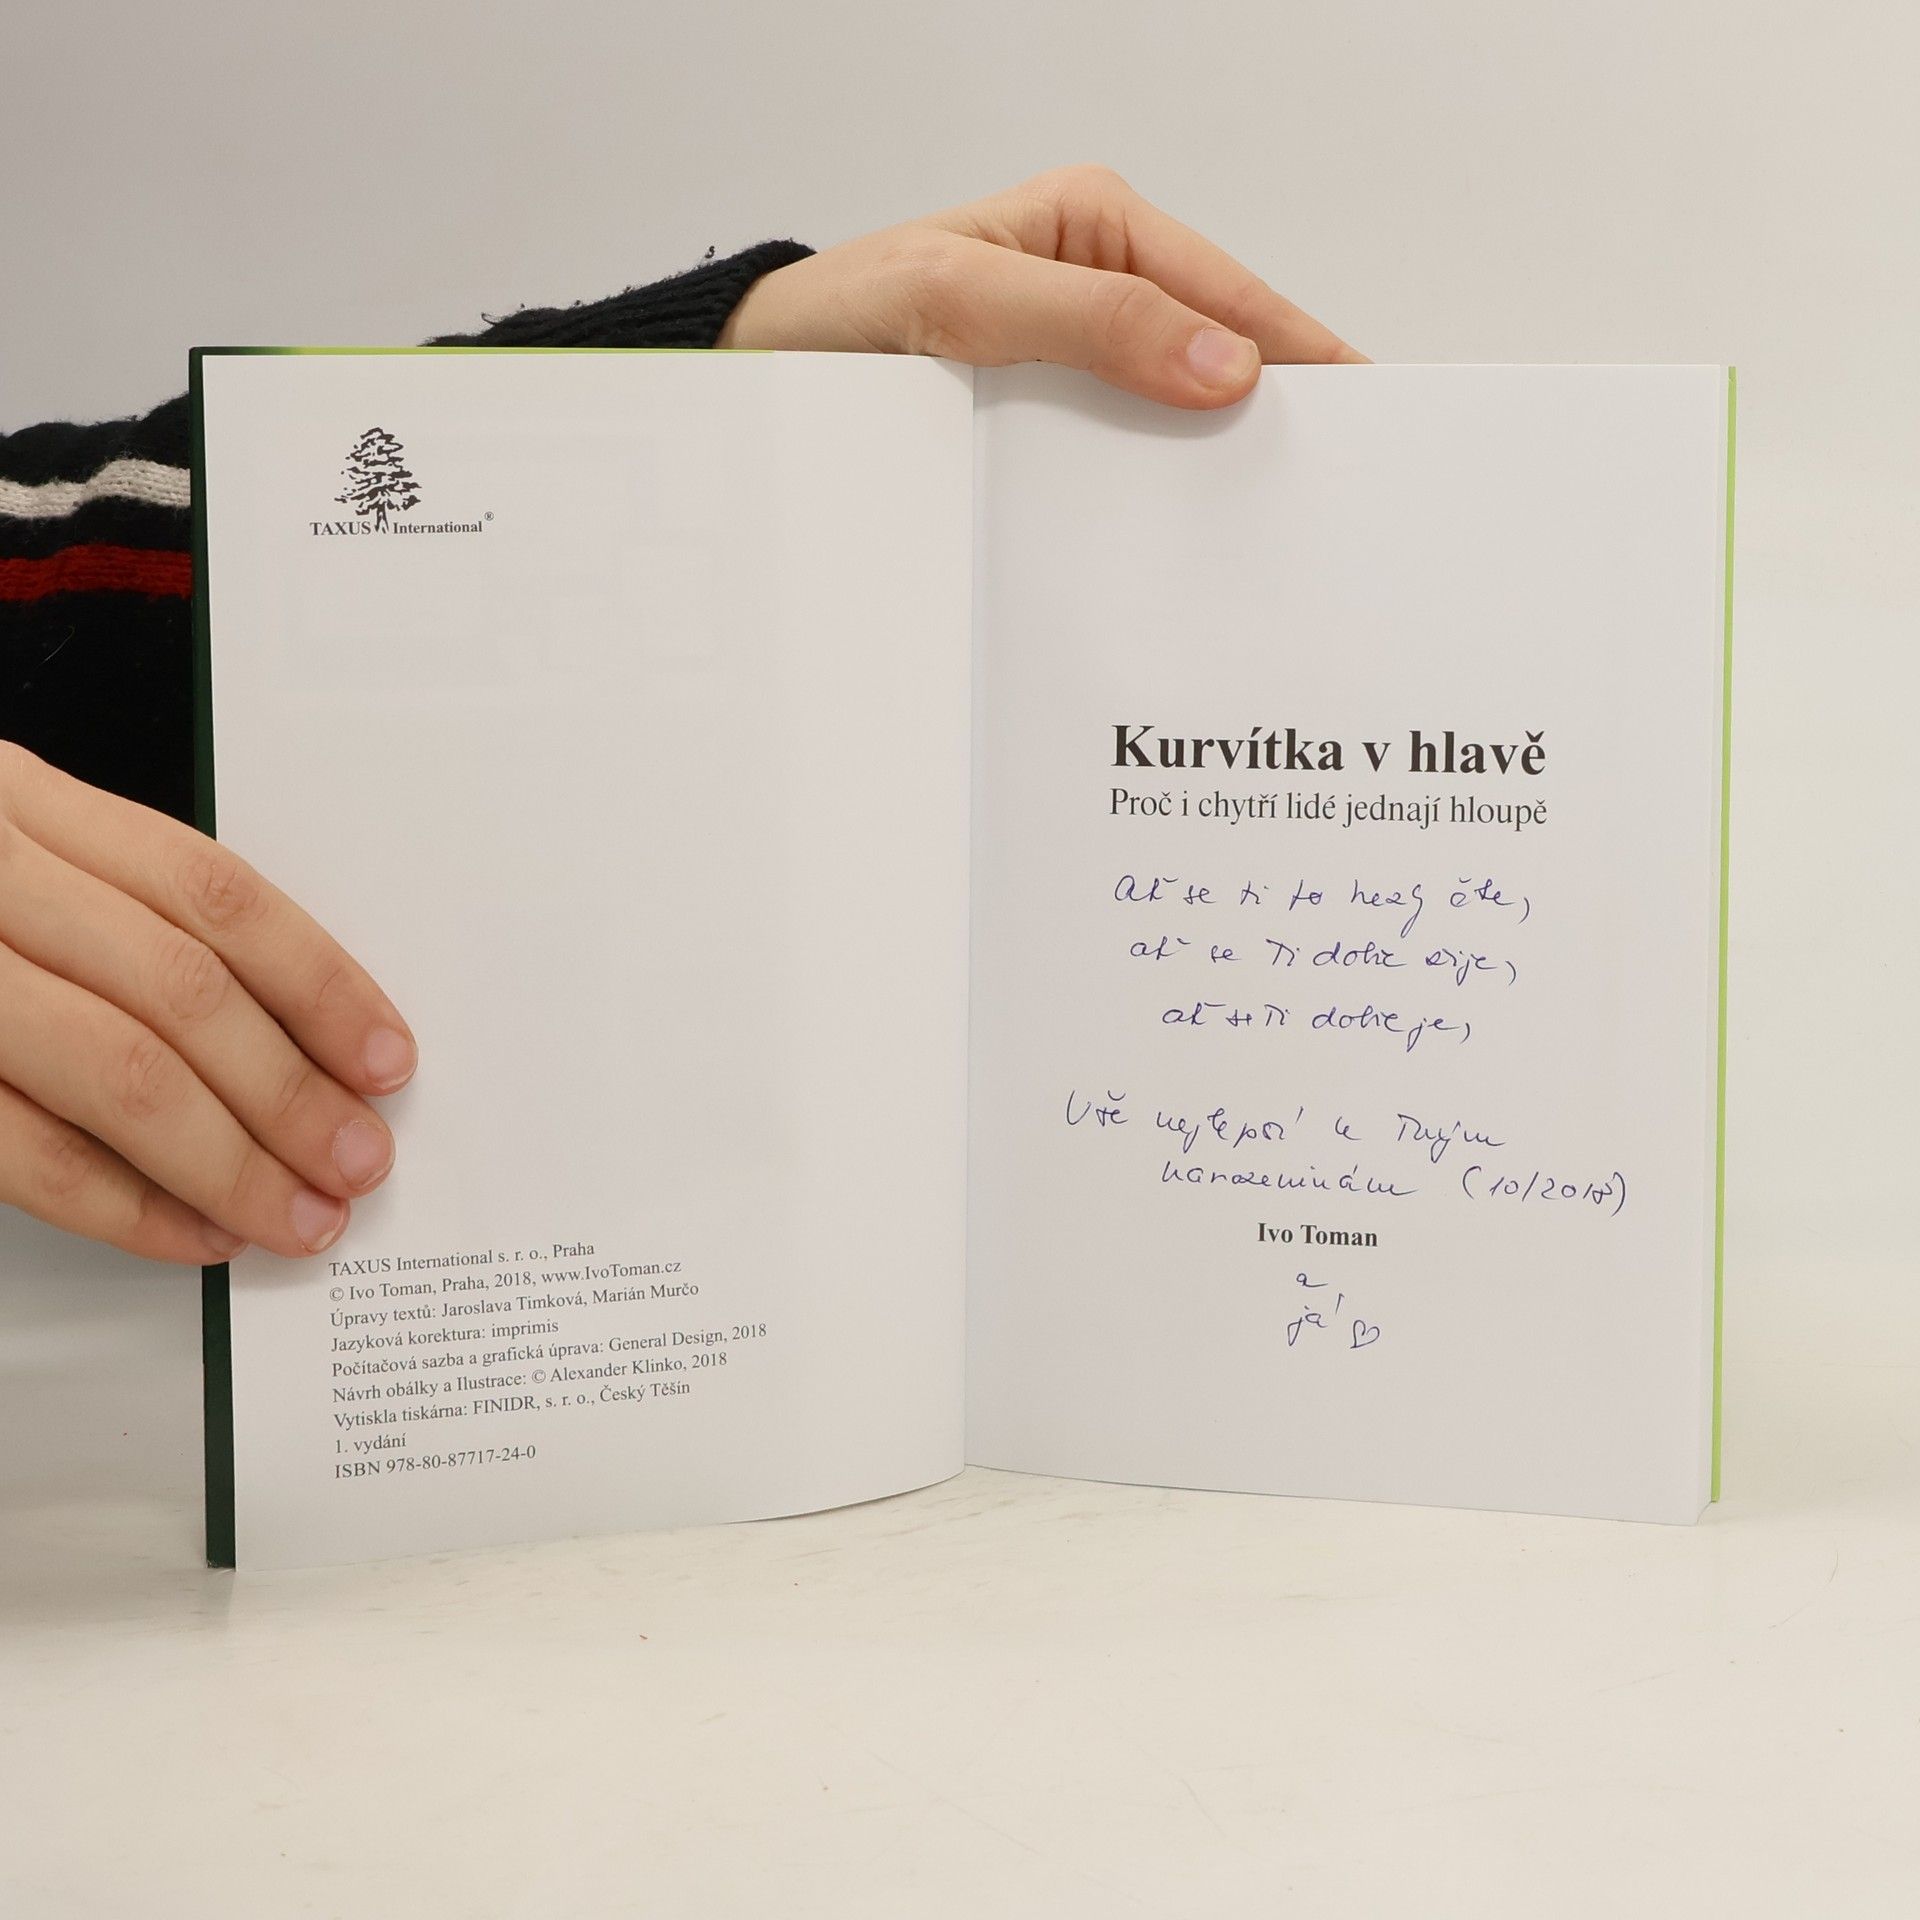 TAXUS International ®
TAXUS International s. r. o., Praha
© Ivo Toman, Praha, 2018, www.IvoToman.cz
Úpravy textů: Jaroslava Timková, Marián Murčo
Jazyková korektura: imprimis
Počítačová sazba a grafická úprava: General Design, 2018
Návrh obálky a Ilustrace: © Alexander Klinko, 2018
Vytiskla tiskárna: FINIDR, s. r. o., Český Těšín
1. vydání
ISBN 978-80-87717-24-0
Kurvítka v hlavě
Proč i chytří lidé jednají hloupě
Ať se ti to hezky čte,
ať se Ti dobře žije,
ať se Ti dobře je,
Vše nejlepší k Tvým
narozeninám (10/2018)
Ivo Toman
a
já ♡